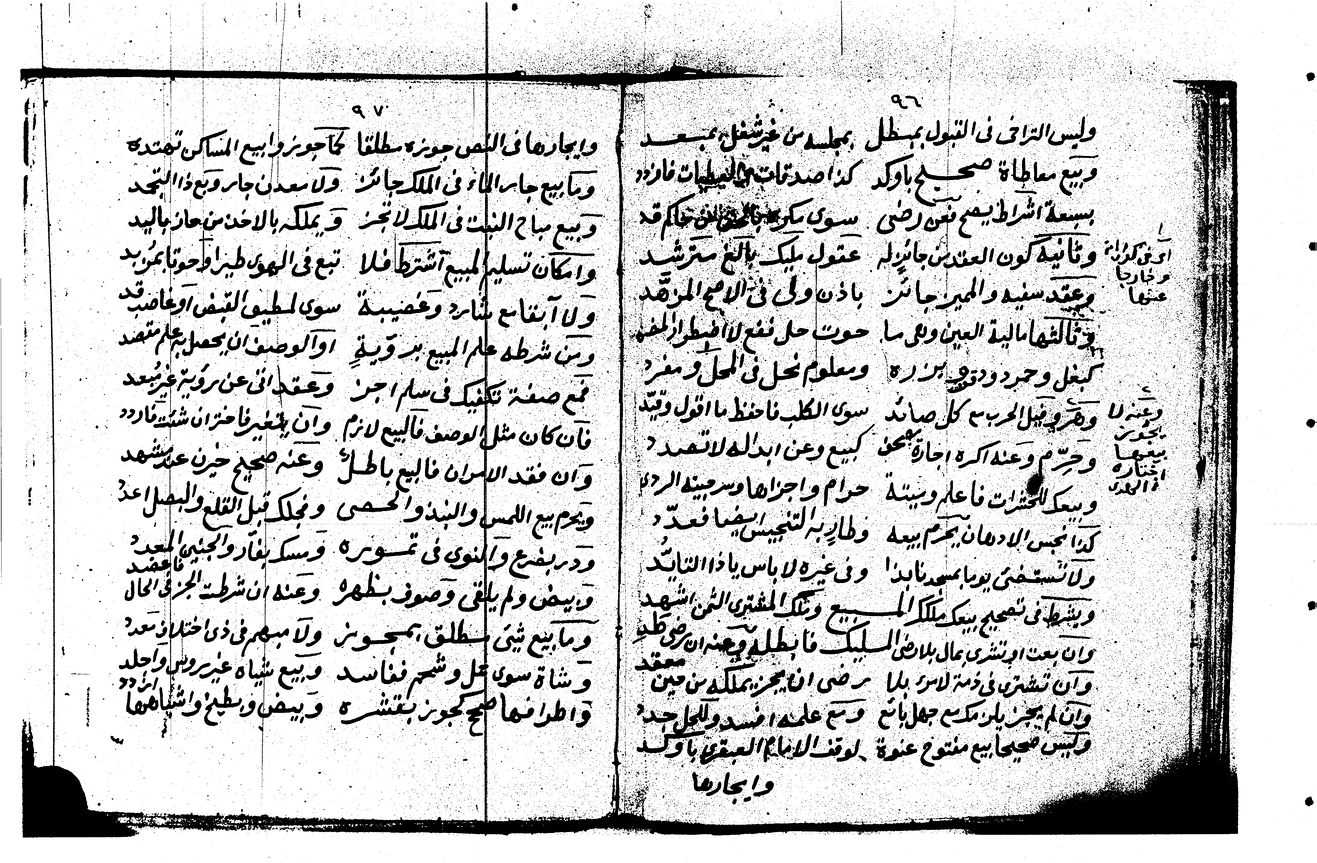 ٩٦
وليس التراخي في القبول بمبطل بمجلسه من غير شغل بمبعد
وبيع معاطاة صحيح باوكد كذا صدقات فازدد
بسبعة اشراط يصح فعن رضى سوى مكره حاكم قد
وثانيه كون العقد من جائز له عقول مليك بالغ مترشد
وعقد سفيه والمميز جائز باذن ولي في الاصح
وثالثها مالية العين وهي ما حوت حل نفع لا اضطرار
كبغل وحمر دود قز وبزره ومعلوم نحل في المحل ومفرد
وهر وفيل الحرب مع كل صائد سوى الكلب فاحفظ ما اقول وقيد
وحرم وعنه اكره اجارة مصحف كبيع وعن ابداله لا تصدد
وبيعك للحشرات فاعلم وميتة حرام واجزاها وسرجينه الردي
كذا نجس الادهان يحرم بيعه وطار به التنجيس ايضا فعدد
ولا تستضئ يوما بمسجدنا بذا وفي غيره لا باس ياذا التايد
ويشرط في تصحيح بيعك ملك المبيع وملك المشتري الثمن اشهد
وان بعت او تشتري بمال بلا رضى المليك فابطله وعنه ان رضي طد
وان تشتري في ذمة لامرئ بلا رضى ان يجز يملكه من حين معقد
وان لم يجز يلزمك مع جهل بائع ومع علمه افسد وللحل جدد
وليس صحيحا بيع مفتوح عنوة لوقف الامام العبقري باوكد
وايجارها
اي في كوارات
وخارجا
عنها
وعنه لا
يجوز
بيعها
اختاره
٩٧
وايجارها في النص جوزه مطلقا كما جوزوا بيع المساكن تهتد
وما بيع جاري الماء في الملك جائز ولا معدن جار وبع ذا التجمد
وبيع مباح النبت في الملك لا تجز ويملكه بالاخذ من حاز باليد
وامكان تسليم المبيع اشترط فلا تبع في الهوى طيرا او حوتا بمزبد
ولا آبقا مع شارد وغصيبة سوى لمطيق القبض او غاصب قد
ومن شرطه علم المبيع برؤية او الوصف ان يحصل به علم مقصد
فمع صفة تكفيك في سلم اجز وعقد اتى عن رؤية غير مبعد
فان كان مثل الوصف فالبيع لازم وان يتغير فاختر ان شئت فاردد
وان فقد الامران فالبيع باطل وعنه صحيح خيرن عند مشهد
ويحرم بيع اللمس والنبذ والحصى وفجلك قبل القلع والبصل اعدد
ودر بضرع والنوى في تموره ومسك بفار والجنين المعدد
وبيض ولم يلقى وصوف بظهره وعنه ان شرطت الجز في الحال فاعضد
وما بيع شيء مطلق بمجوز ولا مبهم في ذي اختلاف معدد
وشاة سوى حمل وشحم ففاسد وبيع شياه غير روس واجلد
واطرافها صح كجوز بقشره وبيض وبطيخ واشباهها ازدد